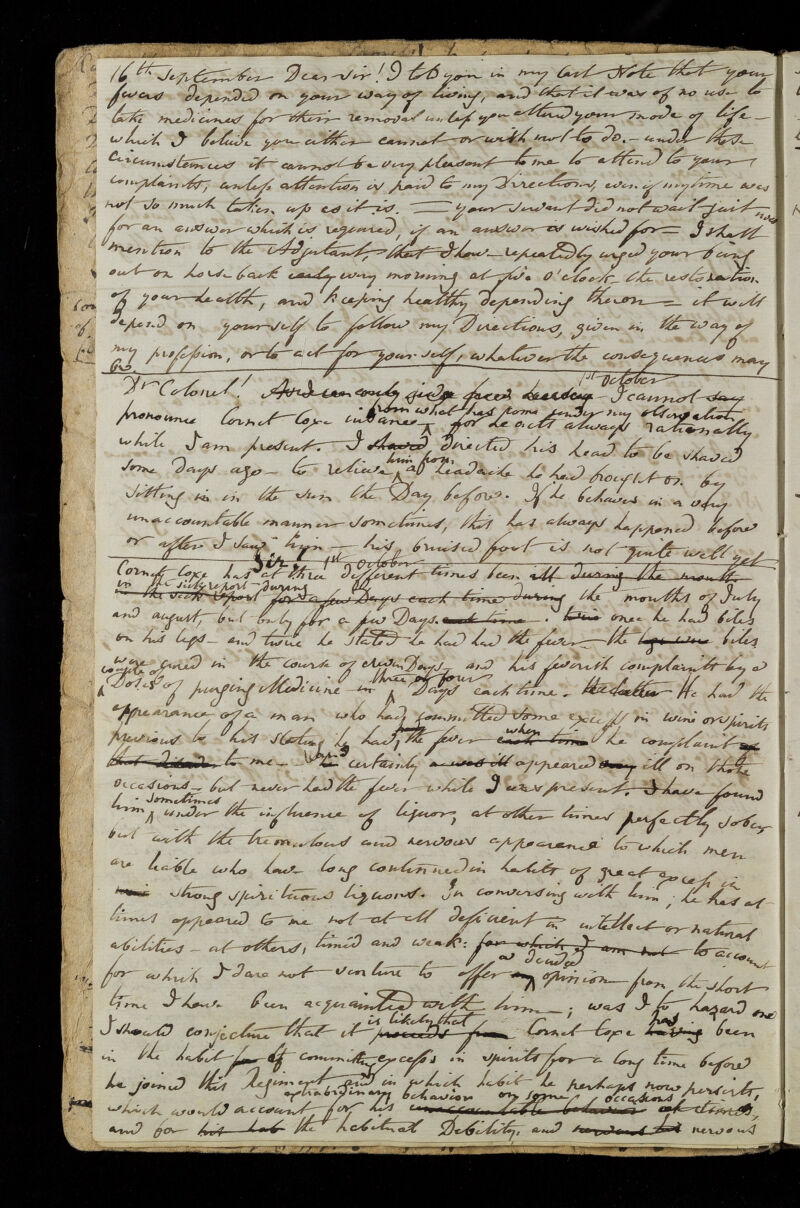 16th September Dear Sir! I told you in my last Note that your
fevers depended on your way of living, and that it was of no use to
take medicines for their removal unless you altered your mode of life –
which I believe you either cannot or will not to do. – under these
Circumstances it cannot be very pleasant to me to attend to your
complaints, unless attention is paid to my Directions, even if my time was
not so much taken up as it is. = your servant did not wait just now
for an answer which is required, if an answer is wished for = I shall
mention to the Adjutant, that I have repeatedly urged your being
out on horse back early every morning at five o'clock, the restoration
of your health, and keeping healthy depending thereon = it will
depend on yourself to follow my Directions, given in the way of
my profession, or to act for yourself, whatever the consequences may
be.
1st October
Dr Colonel! I cannot say
from what has come under my observation
pronounce Cornet Coxe insane, for he acts always rationally
while I am present. I shaved directed his head to be shaved
some Days ago – to relieve him from a headache he had brought on by
sitting in in the sun the Day before. If he behaves in a very
unaccountable manner sometimes, this has always happened before
or after I saw him – his bruised foot is not quite well yet
Sir! 1st October
Cornet Coxe has at three different times been ill during the month
in the sick report during
in the sick report for a few Days each time during the months of July
and august, but only for a few Days each time. once he had biles
on his legs – and twice he stated he had had the fever – the biles
were cured in the course of eleven Days – and his feverish complaints by a
couple of three or four
Doses of purging Medicine in Days each time. He had the
appearance of a man who had committed some excess in wine or spirits
previous to his stating he had had the fever each time when he complaint
to me – certainly appeared ill on those
occasions – but never had the fever while I was present. I have found
him sometimes under the influence of liquor, at other times perfectly sober
but with the tremulous and nervous appearance to which men
are liable who have long continued in habits of great excess in
strong spirituous liquors. In conversing with him; he has at
times appeared to me not at all deficient in intellect or natural
abilities – at others, timid and weak: for which I am not to account
for which I dare not venture to offer a decided opinion from the short
time I have been acquainted with him –; was I to hazard one
I should conjecture that it is likely that proceeds from Cornet Coxe has having been
in the habit of committing excess in spirits for a long time before
he joined this Regiment and in which habit he perhaps now persists,
extraordinary behavior on some occasions
which would account for his unaccountable behavior at times,
and for his hab the habitual Debility, and nervous